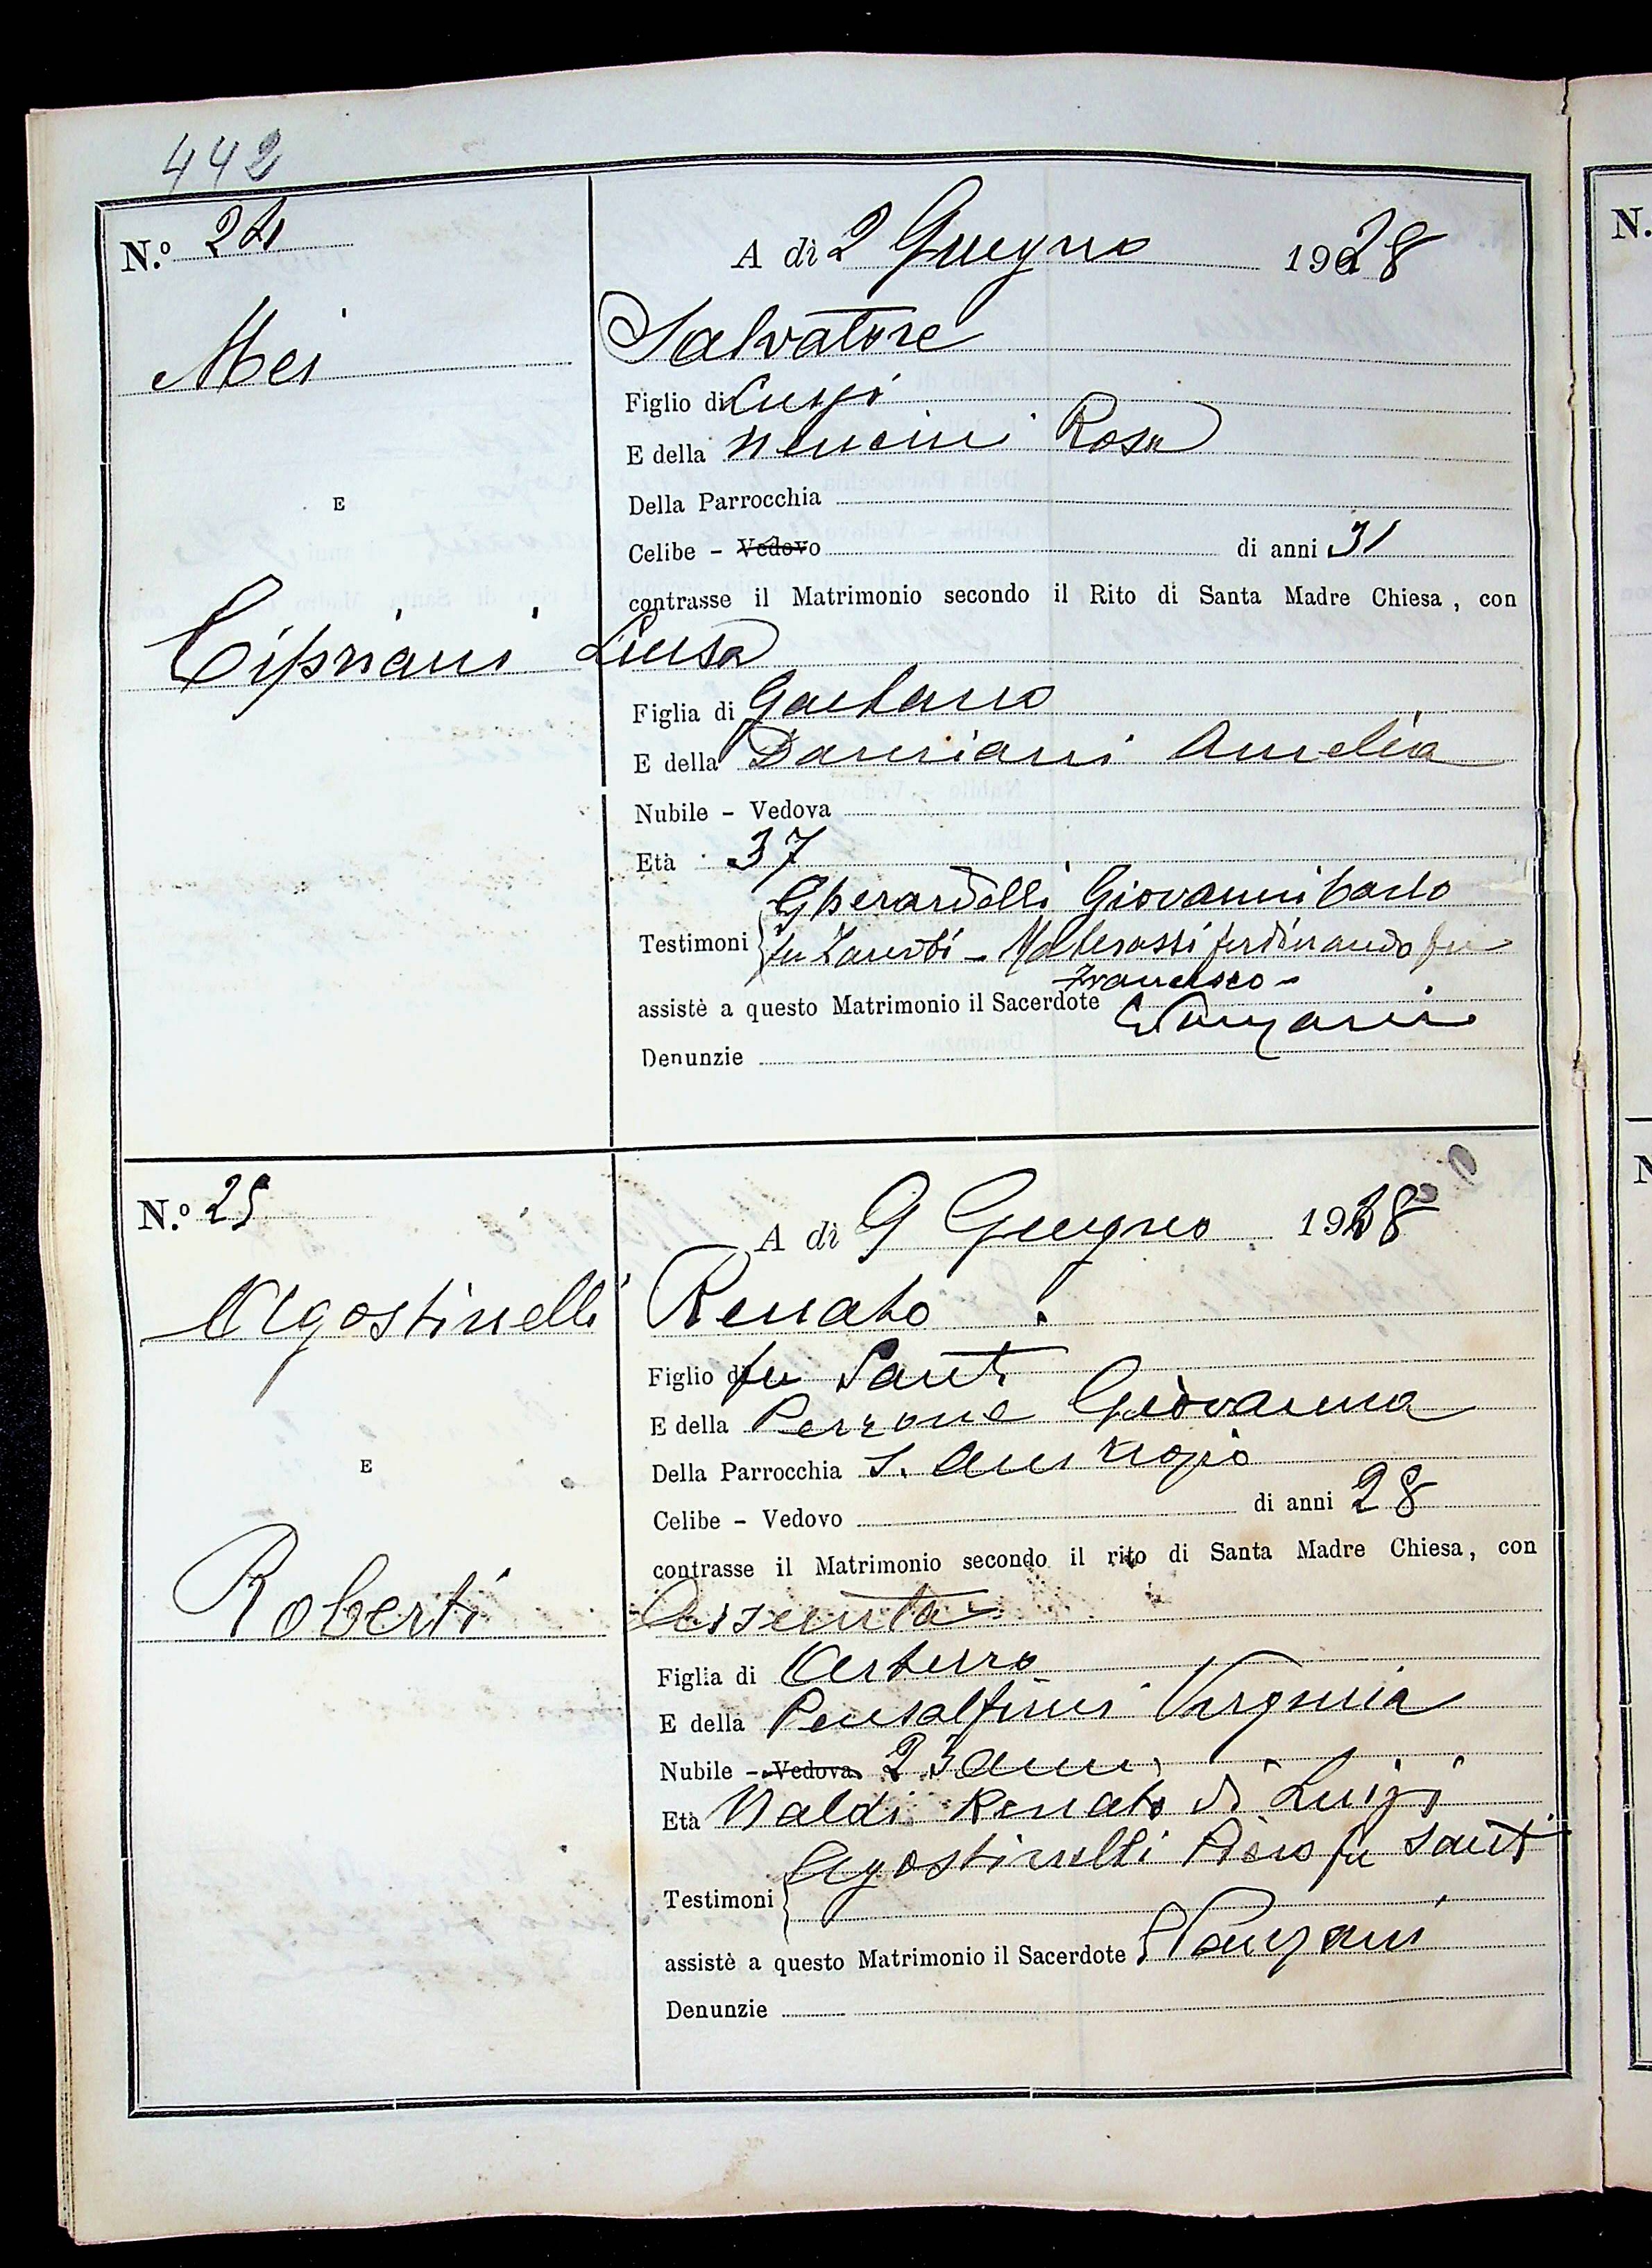 442
N.º 24
A dì 2 Giugno 1928
Mei
Salvatore
Figlio di Luigi
E della Nencini Rosa
Della Parrocchia
E
Celibe - Vedovo di anni 31
contrasse il Matrimonio secondo il Rito di Santa Madre Chiesa, con
Cipriani Luisa
Figlia di Gaetano
E della Damiani Amelia
Nubile - Vedova
Età 37
Gherardelli Giovanni Carlo
Testimoni fu Zanobi - Materassi Ferdinando fu
Francesco -
assistè a questo Matrimonio il Sacerdote
Denunzie
N.º 25
A dì 9 Giugno 1928
Agostinelli Renato
Figlio di fu Santi
E della Perrone Giovanna
Della Parrocchia S. Ambrogio
E
Celibe - Vedovo di anni 28
contrasse il Matrimonio secondo il rito di Santa Madre Chiesa, con
Roberti Assunta
Figlia di Arturo
E della Pensalfini Virginia
Nubile - Vedova 23 anni
Età Naldi Renato di Luigi
Agostinelli Piero fu Santi
Testimoni
assistè a questo Matrimonio il Sacerdote
Denunzie
N.
N